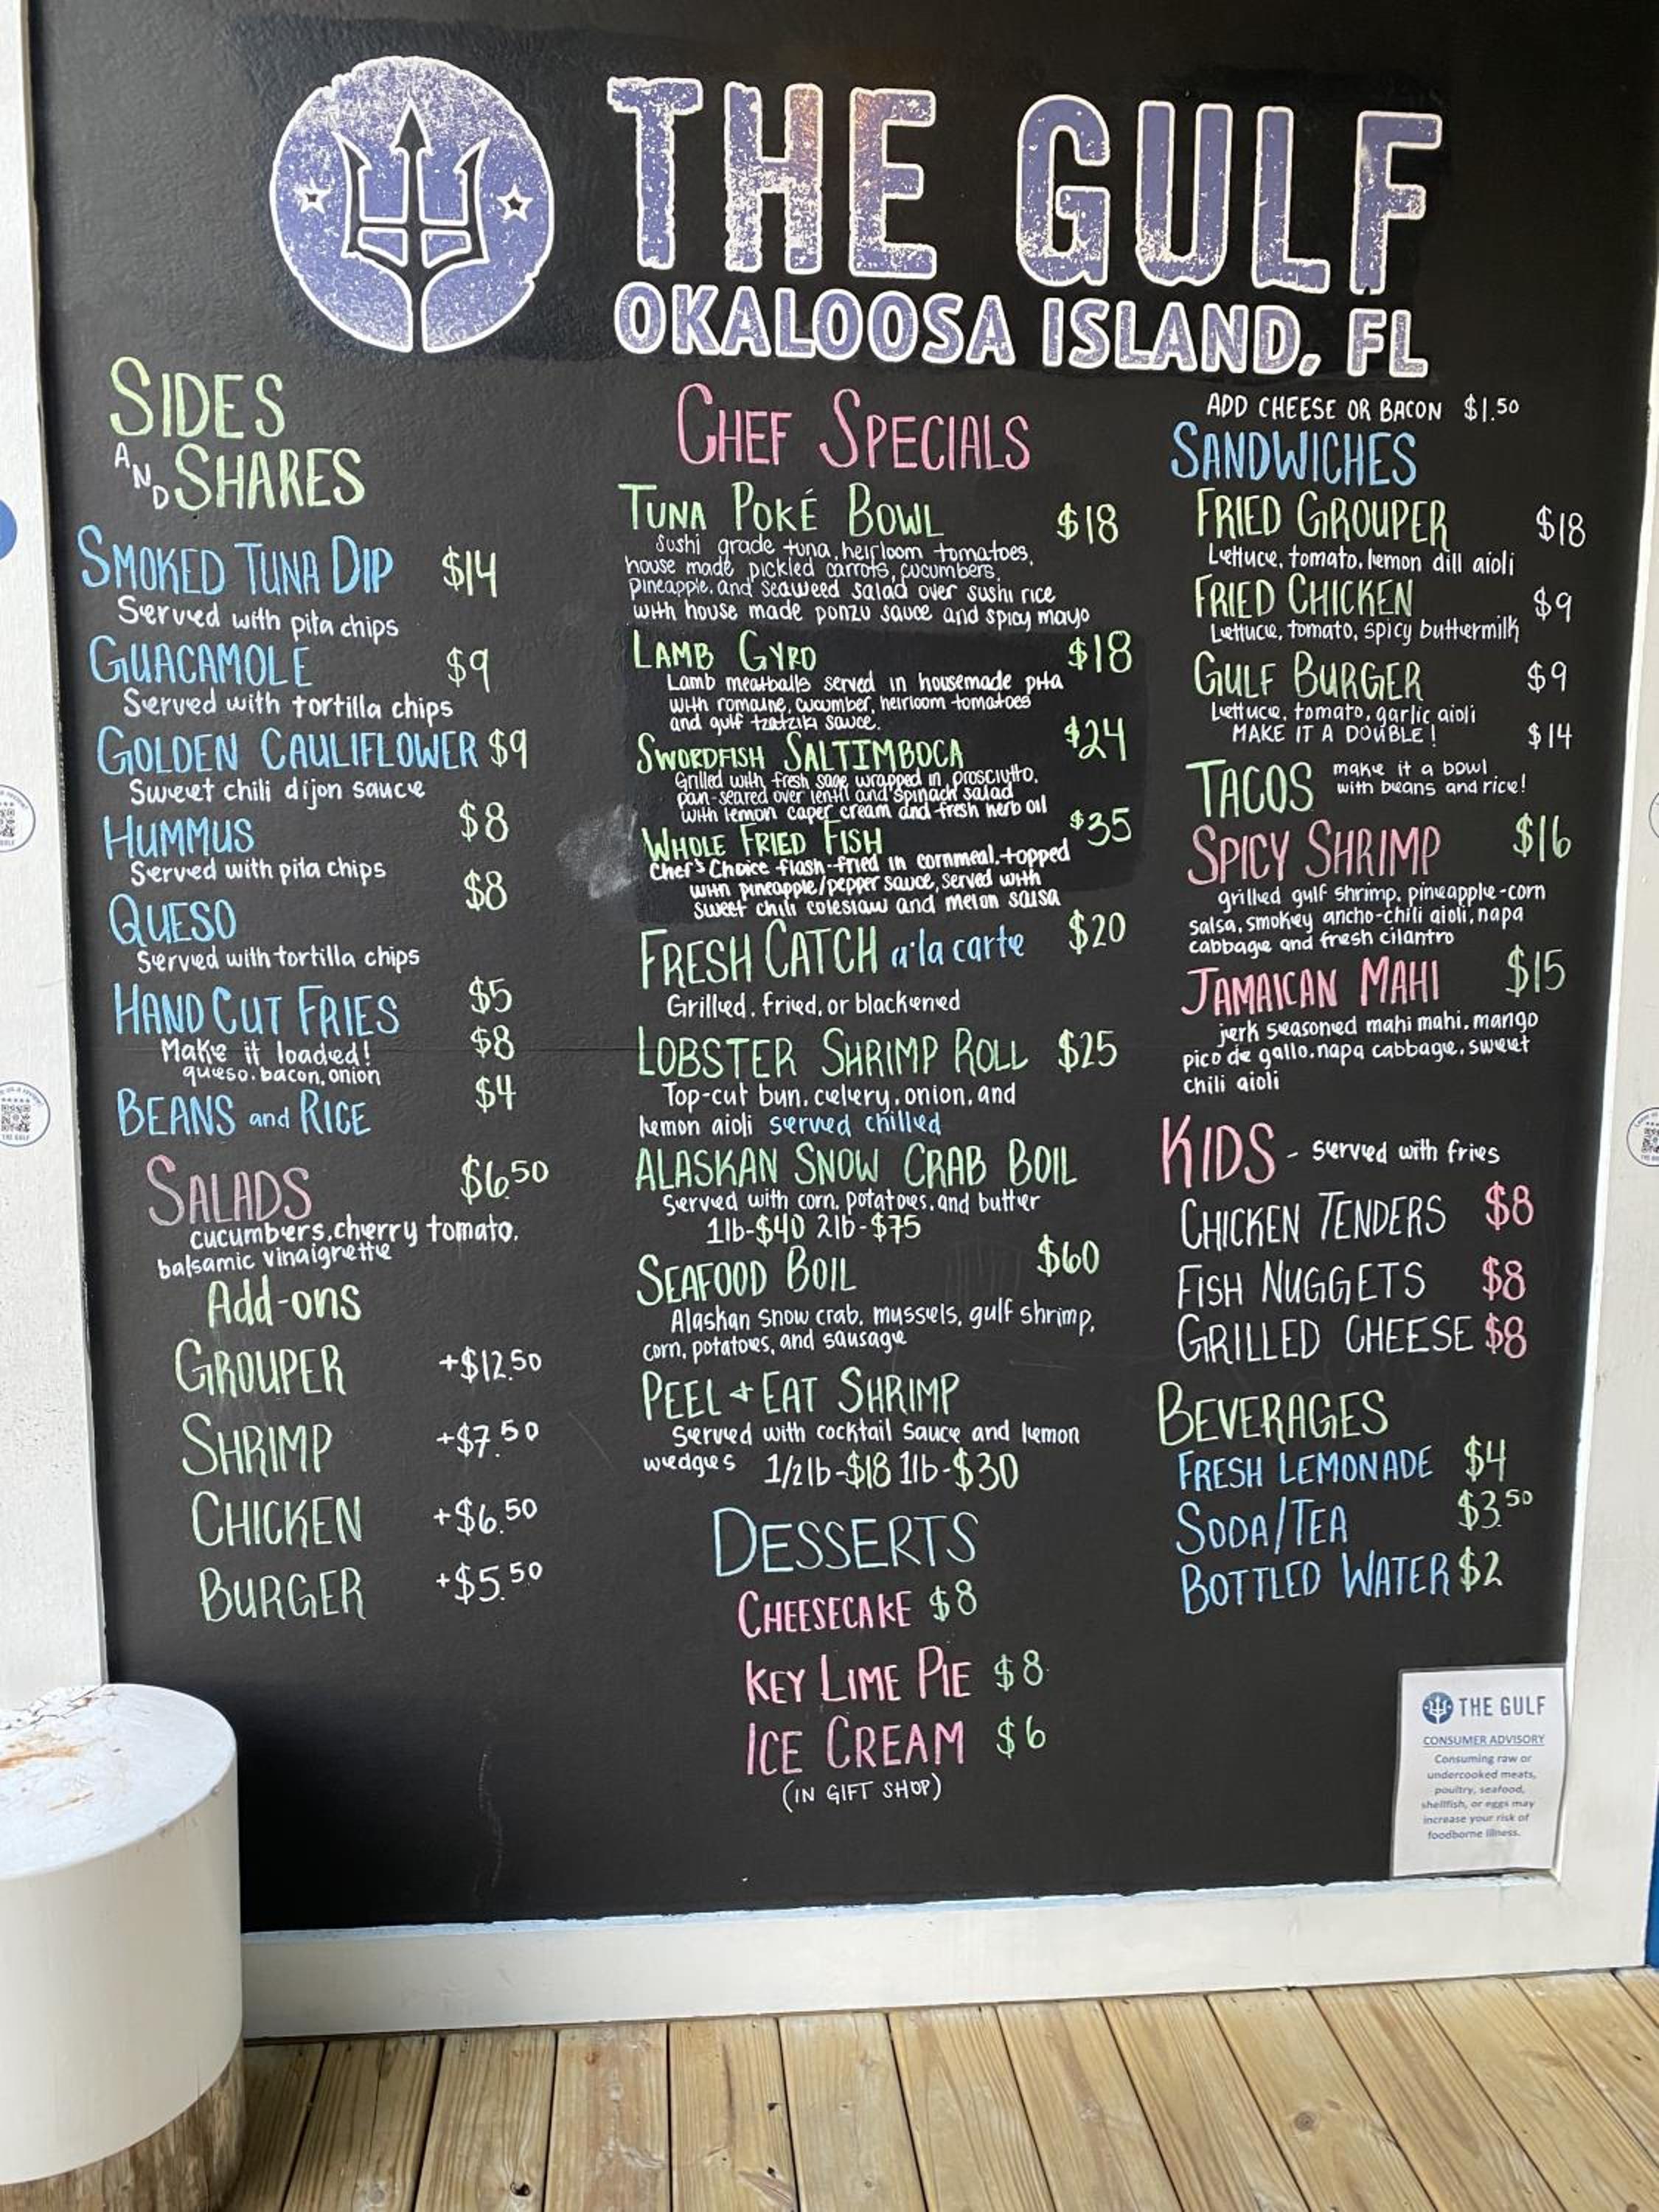 THE GULF
OKALOOSA ISLAND, FL
SIDES
AND SHARES
SMOKED TUNA DIP $14
Served with pita chips
GUACAMOLE $9
Served with tortilla chips
GOLDEN CAULIFLOWER $9
Sweet chili dijon sauce
HUMMUS $8
Served with pita chips
QUESO $8
Served with tortilla chips
HAND CUT FRIES $5
Make it loaded! $8
queso, bacon, onion
BEANS and RICE $4
SALADS $6.50
cucumbers, cherry tomato,
balsamic vinaigrette
Add-ons
GROUPER +$12.50
SHRIMP +$7.50
CHICKEN +$6.50
BURGER +$5.50
CHEF SPECIALS
TUNA POKÉ BOWL $18
Sushi grade tuna, heirloom tomatoes,
house made pickled carrots, cucumbers,
pineapple, and seaweed salad over sushi rice
with house made ponzu sauce and spicy mayo
LAMB GYRO $18
Lamb meatballs served in housemade pita
with romaine, cucumber, heirloom tomatoes
and gulf tzatziki sauce.
SWORDFISH SALTIMBOCA $24
Grilled with fresh sage wrapped in prosciutto,
pan-seared over lentil and spinach salad
with lemon caper cream and fresh herb oil
WHOLE FRIED FISH $35
Chef's Choice flash-fried in cornmeal, topped
with pineapple/pepper sauce, served with
sweet chili coleslaw and melon salsa
FRESH CATCH a'la carte $20
Grilled, fried, or blackened
LOBSTER SHRIMP ROLL $25
Top-cut bun, celery, onion, and
lemon aioli served chilled
ALASKAN SNOW CRAB BOIL
Served with corn, potatoes, and butter
1lb-$40 2lb-$75
SEAFOOD BOIL $60
Alaskan snow crab, mussels, gulf shrimp,
corn, potatoes, and sausage
PEEL + EAT SHRIMP
Served with cocktail sauce and lemon
wedges 1/2lb-$18 1lb-$30
DESSERTS
CHEESECAKE $8
KEY LIME PIE $8
ICE CREAM $6
(IN GIFT SHOP)
ADD CHEESE OR BACON $1.50
SANDWICHES
FRIED GROUPER $18
Lettuce, tomato, lemon dill aioli
FRIED CHICKEN $9
Lettuce, tomato, spicy buttermilk
GULF BURGER $9
Lettuce, tomato, garlic aioli
MAKE IT A DOUBLE! $14
TACOS make it a bowl
with beans and rice!
SPICY SHRIMP $16
grilled gulf shrimp, pineapple-corn
salsa, smokey ancho-chili aioli, napa
cabbage and fresh cilantro
JAMAICAN MAHI $15
jerk seasoned mahi mahi, mango
pico de gallo, napa cabbage, sweet
chili aioli
KIDS - served with fries
CHICKEN TENDERS $8
FISH NUGGETS $8
GRILLED CHEESE $8
BEVERAGES
FRESH LEMONADE $4
SODA/TEA $3.50
BOTTLED WATER $2
THE GULF
CONSUMER ADVISORY
Consuming raw or
undercooked meats,
poultry, seafood,
shellfish, or eggs may
increase your risk of
foodborne illness.